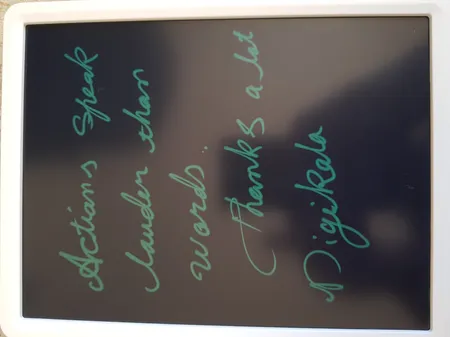 Actions Speak
louder than
words.
Thanks a lot
Digikala